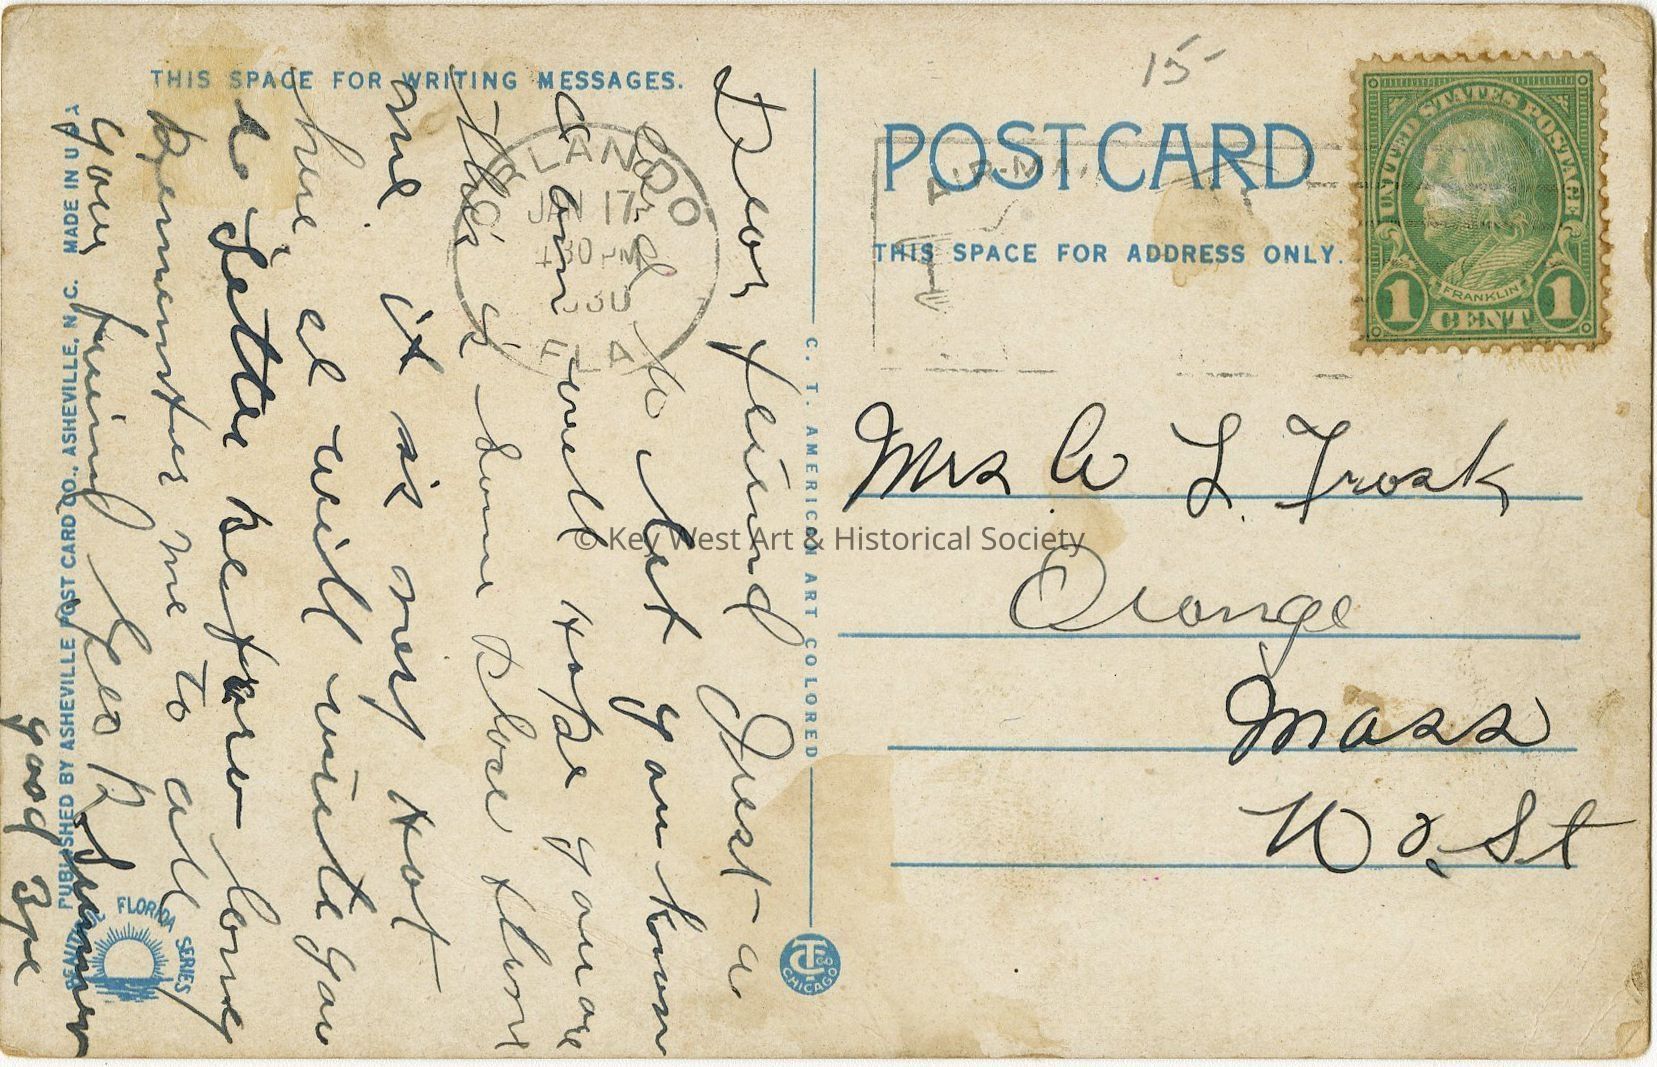 THIS SPACE FOR WRITING MESSAGES.
Dear freind Just a
Card to let you know
I am well Hope you are
This is some Place down
here it is very Hot
here el will write you
a Letter before long
Remember me to all
your freind Geo P Sumner
good Bye
MADE IN U S A
PUBLISHED BY ASHEVILLE POST CARD CO., ASHEVILLE, N. C.
FLORIDA SERIES
ORLANDO
JAN 17
4 30 PM
FLA
C. T. AMERICAN ART COLORED
CHICAGO
15-
POST CARD
THIS SPACE FOR ADDRESS ONLY.
UNITED STATES POSTAGE
FRANKLIN
1 CENT 1
Mrs L. Trask
Orange
Mass
St
© Key West Art & Historical Society